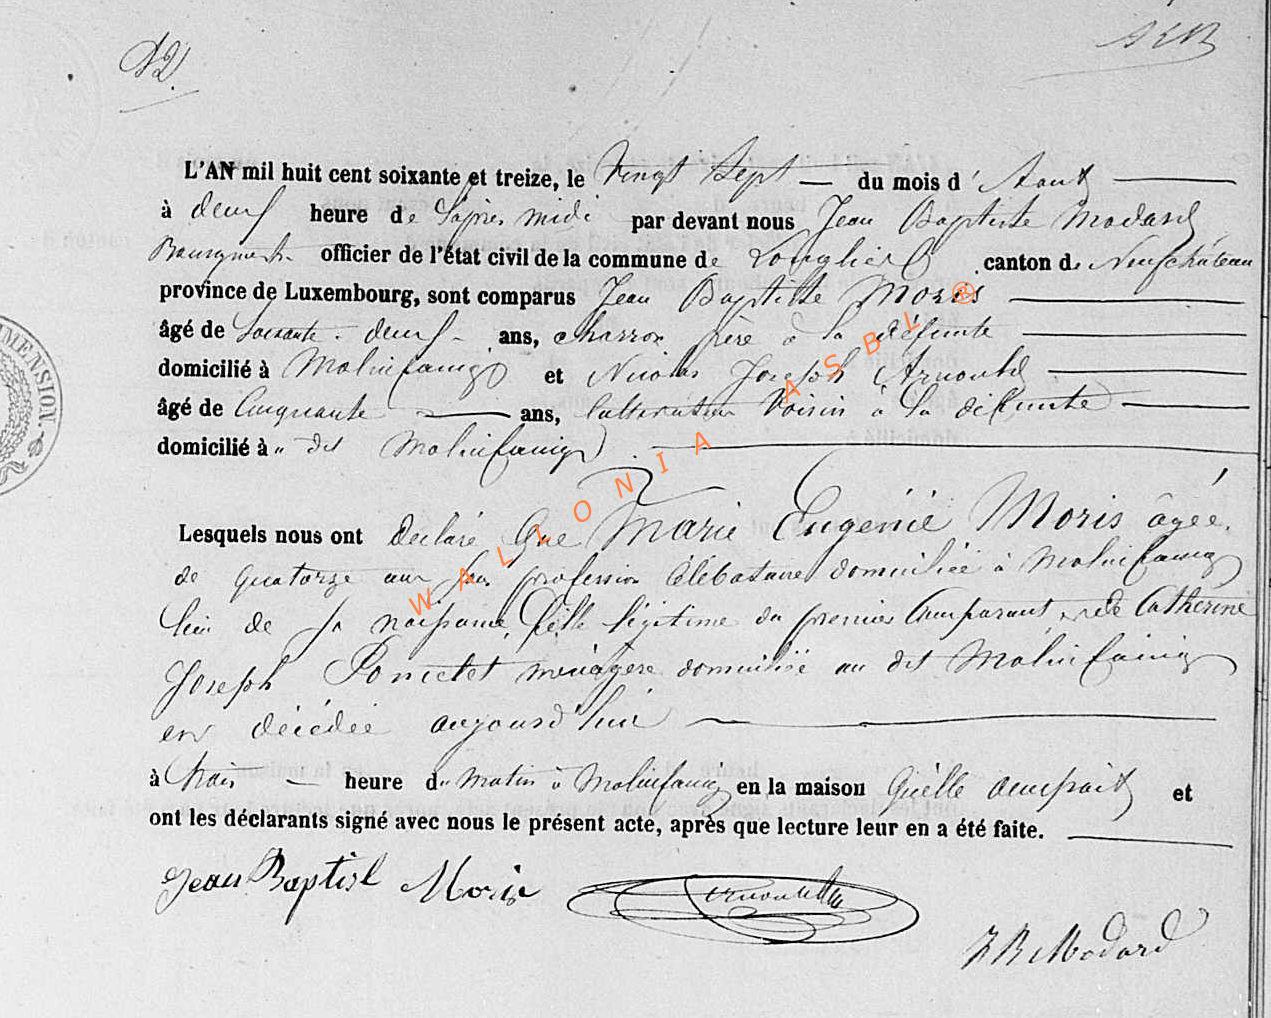 12
L'AN mil huit cent soixante et treize, le Vingt Sept du mois d'Aout
à deux heure de l'après midi par devant nous Jean Baptiste Modard
Bourgmestre officier de l'état civil de la commune de Longlier canton de Neufchâteau
province de Luxembourg, sont comparus Jean Baptiste Moris
âgé de Soixante deux ans, charron père à la défunte
domicilié à Molinfaing et Nicolas Joseph Arnould
âgé de Cinquante ans, Cultivateur Voisin à la défunte
domicilié à u dit Molinfaing
Lesquels nous ont déclaré Que Marie Eugénie Moris âgée
de quatorze ans profession Célébataire domiciliée à Molinfaing
lieu de sa naissance, fille légitime du premier Comparant et de Catherine
Joseph Poncelet ménagère domiciliée au dit Molinfaing
est décédée aujourd'hui
à trois heure du matin à Molinfaing en la maison Qu'elle occupait et
ont les déclarants signé avec nous le présent acte, après que lecture leur en a été faite.
Jean Baptist Moris Arnould
J B Modard
WALLONIA ASBL ®
MENSION